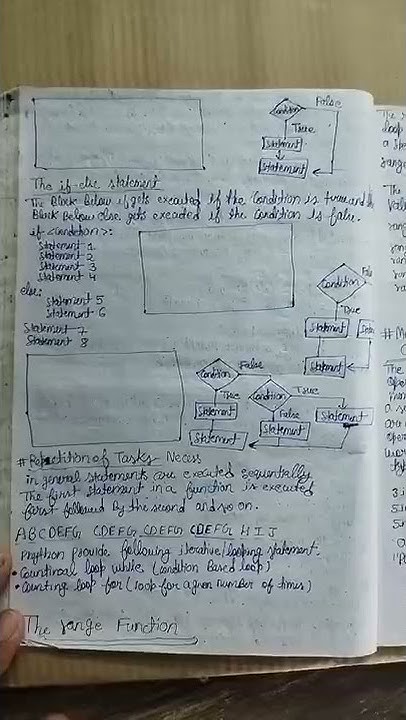 Condition
False
True
Statement
Statement
The if-else statement
The Block Below if gets executed if the Condition is true and
Block Below else gets executed if the Condition Is false.
if <Condition>:
Statement 1
Statement 2
Statement 3
Statement 4
else:
Statement 5
Statement 6
Statement 7
Statement 8
Condition
True
Statement
Statement
Condition
False
Condition
True
True
Statement
False
Statement
Statement
Statement
# Repetition of Tasks - Necess
in general statements are executed sequentially
The first statement in a function is executed
first followed By the second and so on.
ABCDEFG CDEFG CDEFG CDEFG H I J
Phython provide following iterative/looping statement.
• Countinoal loop while (Condition Based loop)
• Counting loop for (loop for a given number of times)
The range Function